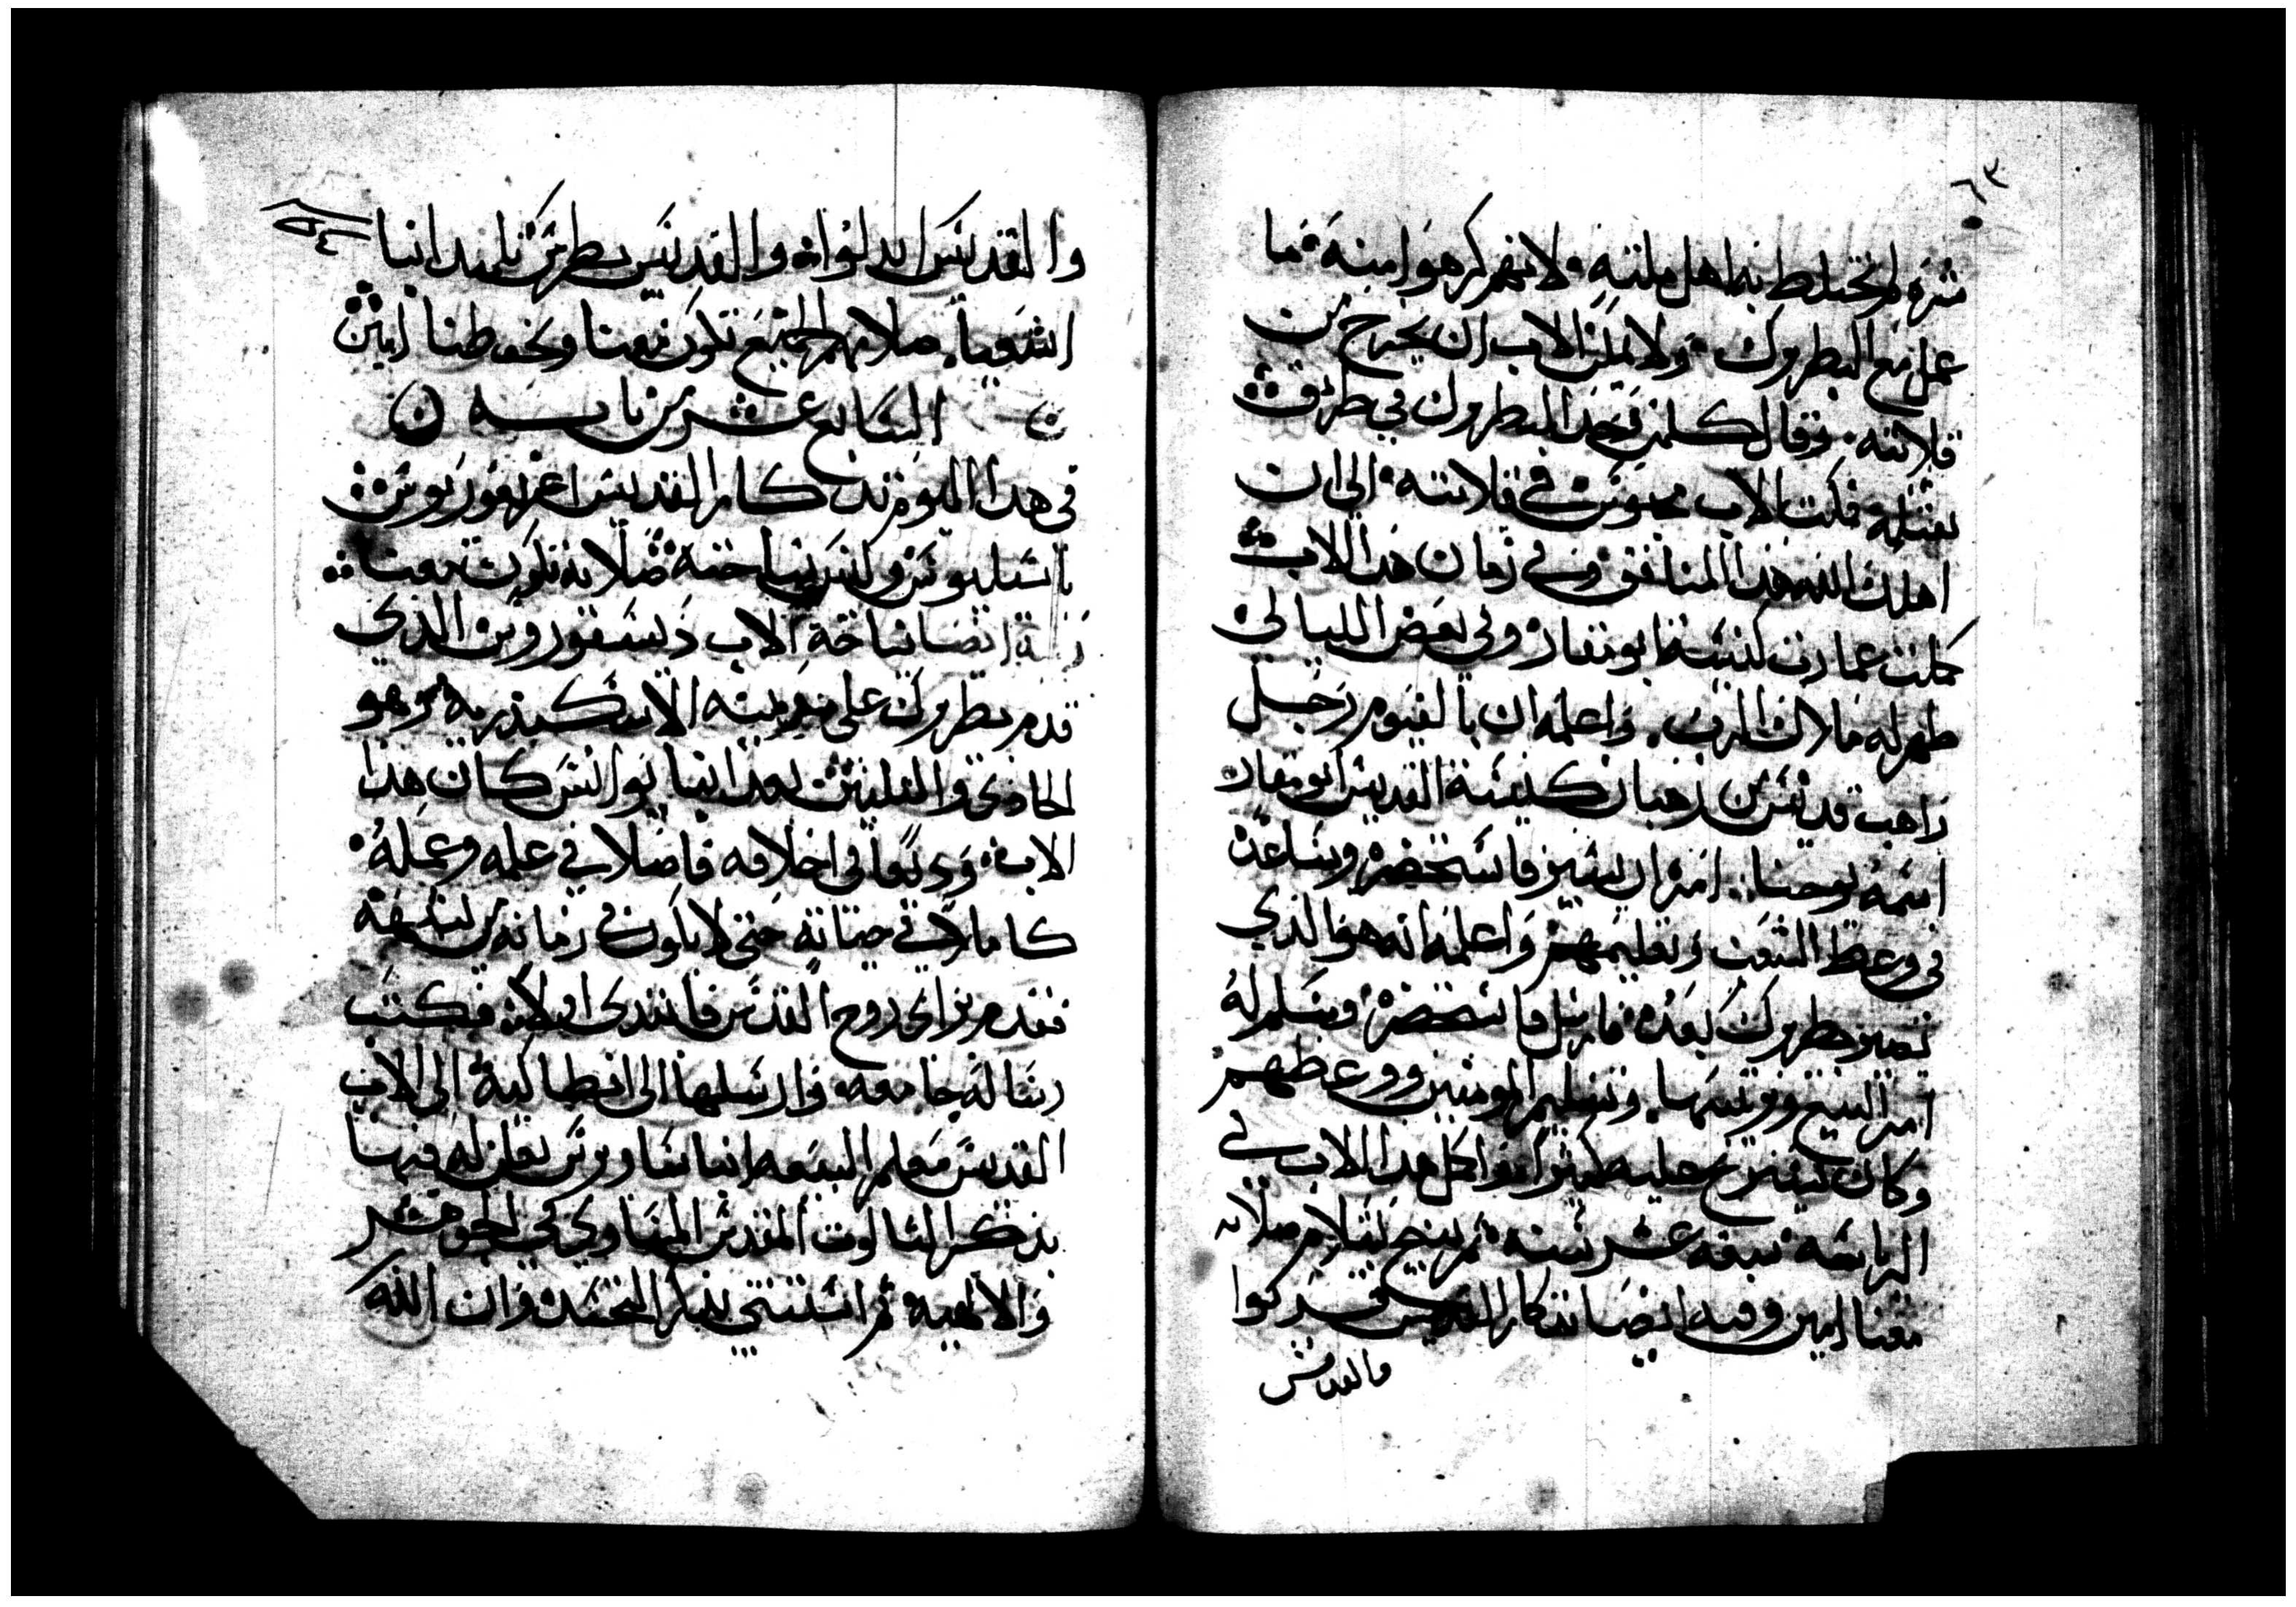 ٦٣
شره لم يختلط به اهل ملته لانهم كرهوا منه ما
عمل مع البطروك ولا يمكن الاب ان يخرج من
قلايته وقال كلمن وجد البطروك في طريق
يقتله فمكث الاب محبوس في قلايته الى ان
اهلك الله هذا المنافق وفي زمان هذا الاب
كملت عمارت كنيسة ابو مقار وفي بعض الليالي
ظهر له ملاك الرب واعلمه ان بالفيوم رجل
راهب قديس من رهبان كنيسة القديس ابو مقار
اسمه يوحنا امره ان يسير فاستحضره ويساعده
في وعظ الشعب وتعليمهم واعلمه انه هو الذي
تصير بطروك بعده فارسل فاستحضره وسلم له
امر البيع وترتيبها وتعليم المومنين ووعظهم
وكان كيستريح عليه كثير اكمل هذا الاب في
الرياسه سبعه عشر سنه ثم تنيح بسلام صلاته
معنا امين وفيه ايضا تدكار القديس
والقديس
٥٤
والقديس ابدلواه والقديس بطرس تلميد انبا
اشعيا صلاتهم الجميع تكون معنا وتحفظنا امين
السابع عشر من بابه
في هدا اليوم تدكار القديس اغريغوريوس
باسيليوس نياحته صلاته تكون معنا
ايضا نياحة الاب ديسقوروس الذي
قدم بطروك على مدينه الاسكندريه وهو
الحادي والثلثين بعد انبا يوانس كان هذا
الاب وديعا في اخلاقه فاضلا في علمه وعمله
كاملا في حياته حتى لا يكون في زمانه من يشبهه
فقدم براي روح القدس فابتدى اولا فكتب
رساله جامعه وارسلها الى انطاكية الى الاب
القديس معلم البيعه انبا ساويرس يعلن له فيها
بذكر الثالوت المقدس المساوي في الجوهر
والالهيه ثم استتنى بذكر التجسد وان الله